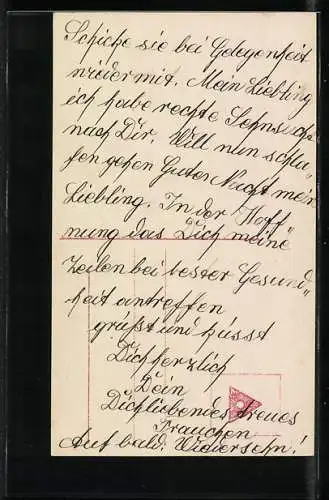 Schicke sie bei Gelegenheit
wieder mit. Mein Liebling
ich habe rechte Sehnsucht
nach Dir. Will nun schla„
fen gehen Gute Nacht mein
Liebling. In der Hoff„
nung das Dich meine
Zeilen bei bester Gesund„
heit antreffen
grüßt und küsst
Dich herzlich
Dein
Dichliebendes treues
Frauchen
Auf bald. Wiedersehn!